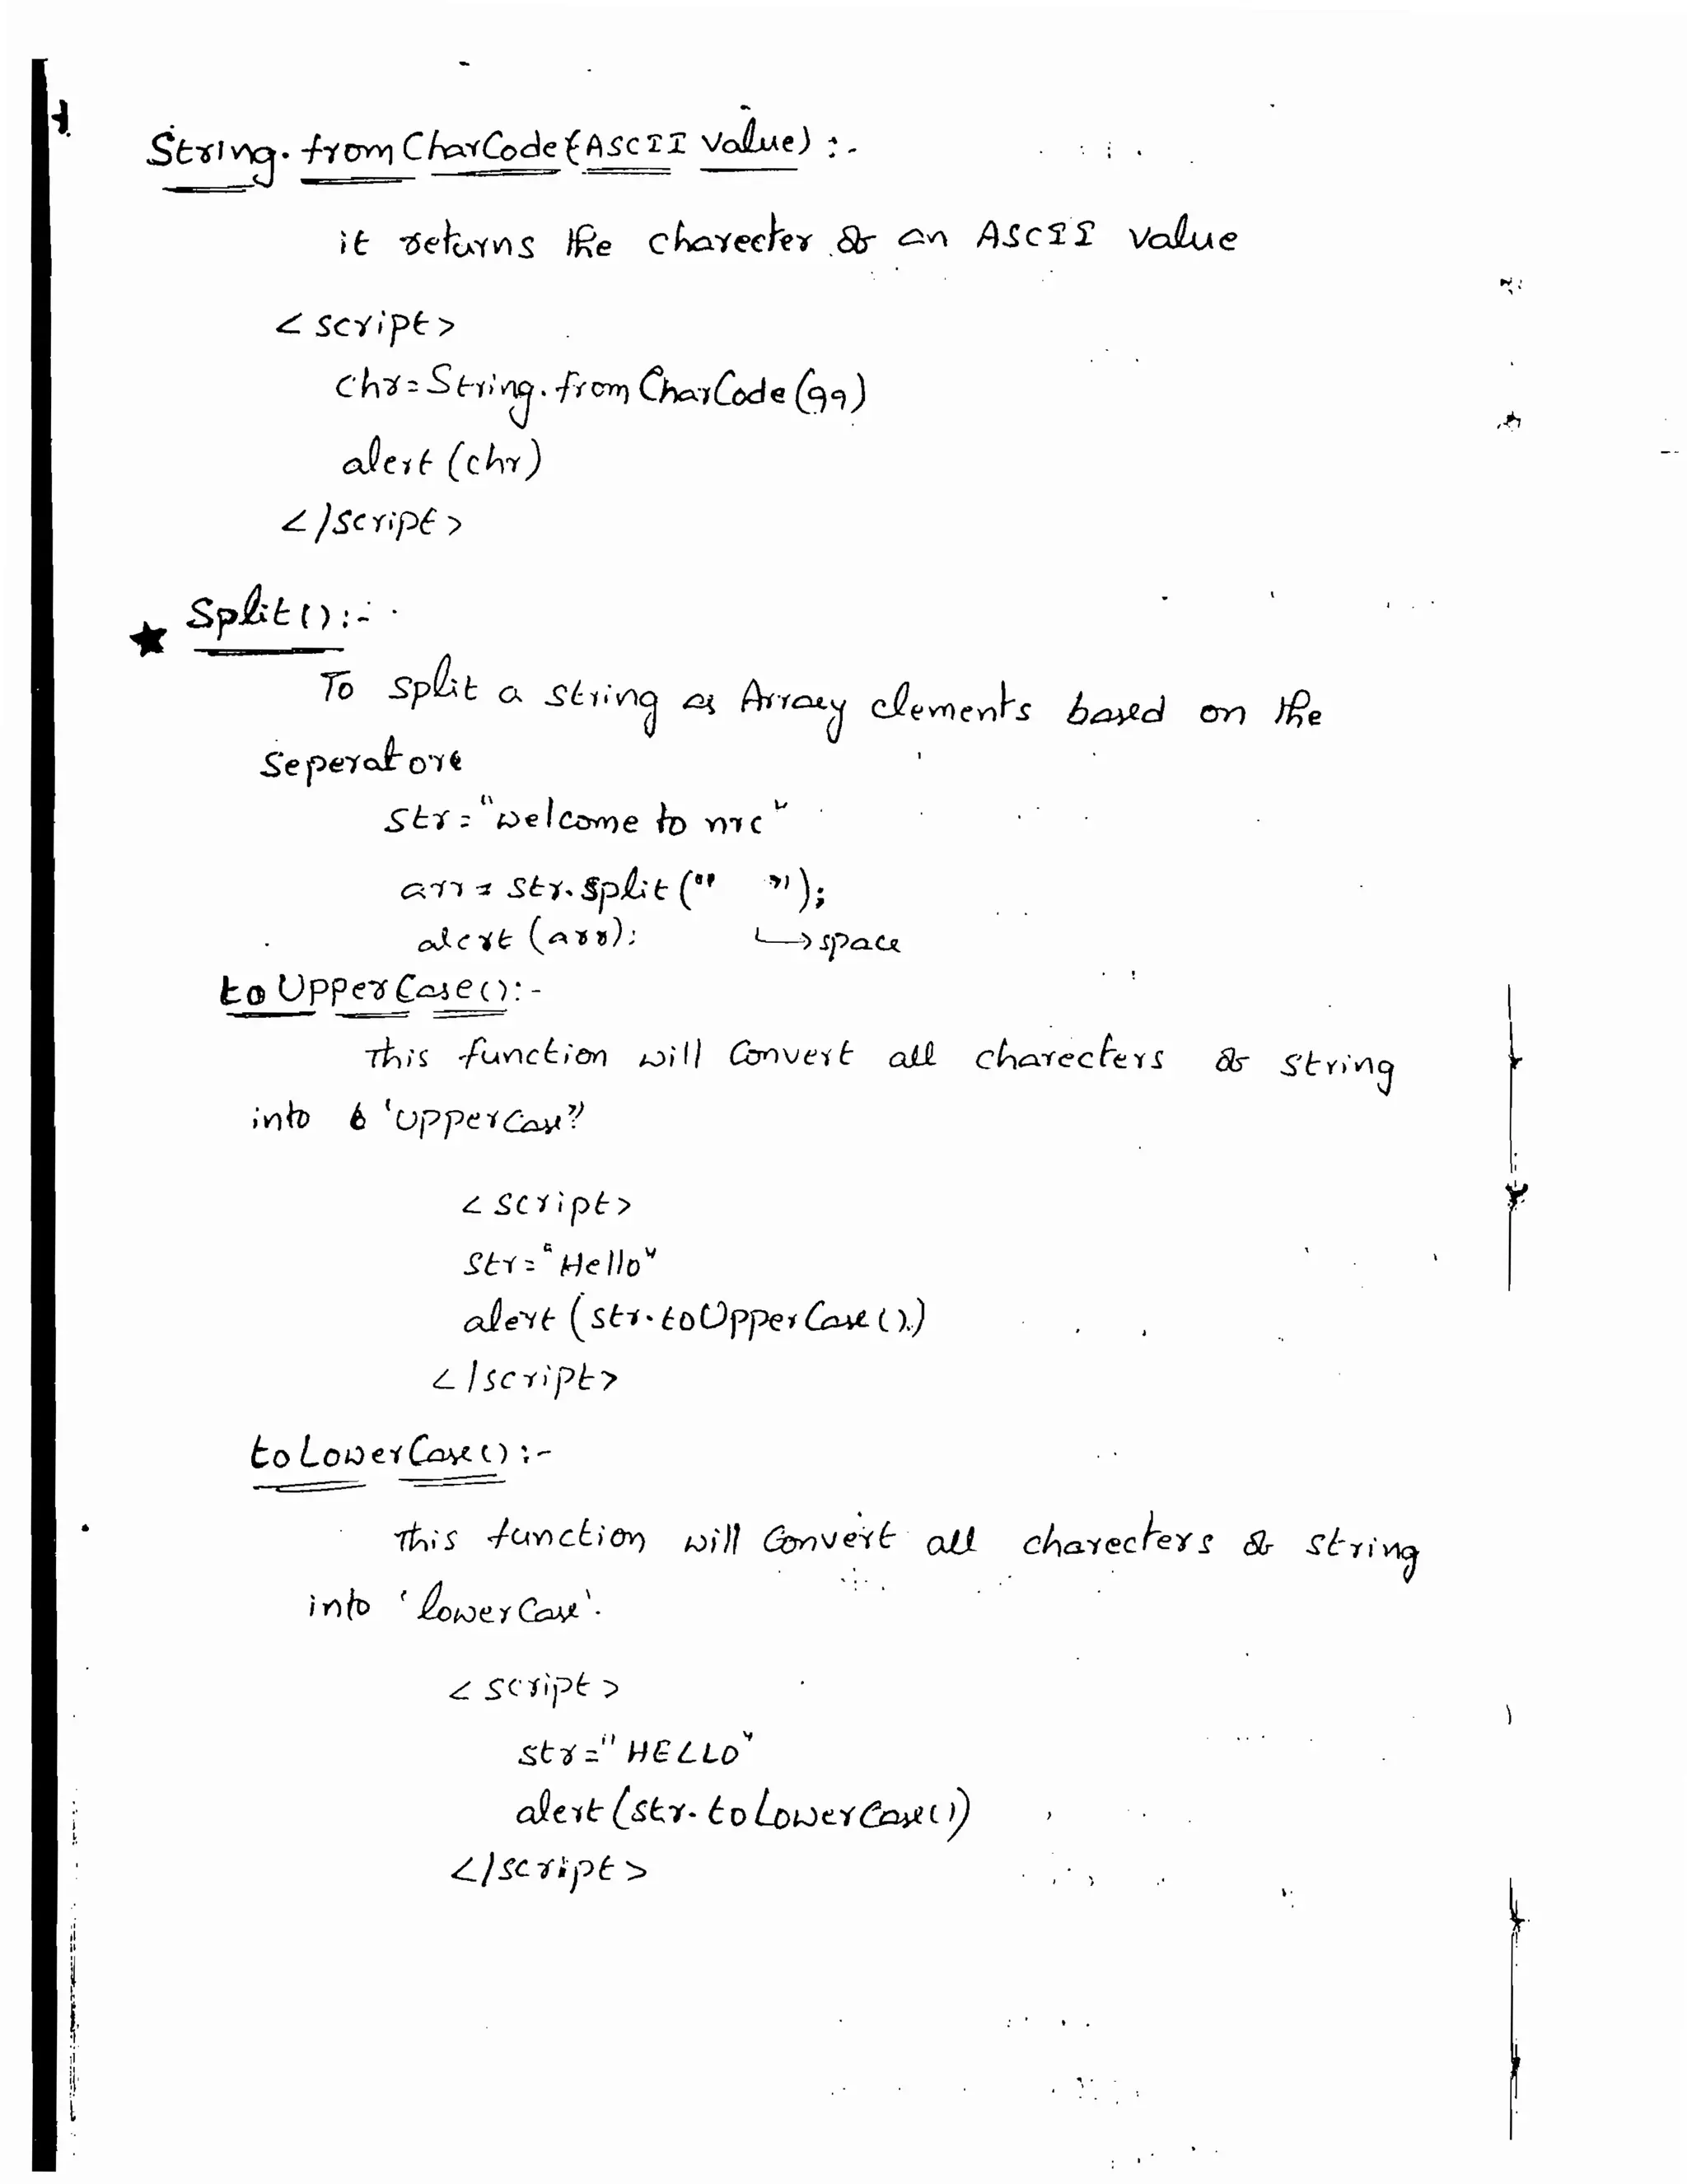 String.fromCharCode(ASCII value) :-
it returns the charecter of an ASCII value
<script>
chr=String.fromCharCode(99)
alert(chr)
</script>
Split():-
To split a string as Array elements based on the
Seperatore
Str="welcome to nrc"
arr = str.split(" ");
alert (arr);
↳space
toUpperCase():-
This function will Convert all charecters of string
into 'UpperCase'
<script>
Str="Hello"
alert (str.toUpperCase())
</script>
toLowerCase():-
This function will Convert all charecters of string
into 'lowerCase'.
<script>
str="HELLO"
alert(str.toLowerCase())
</script>